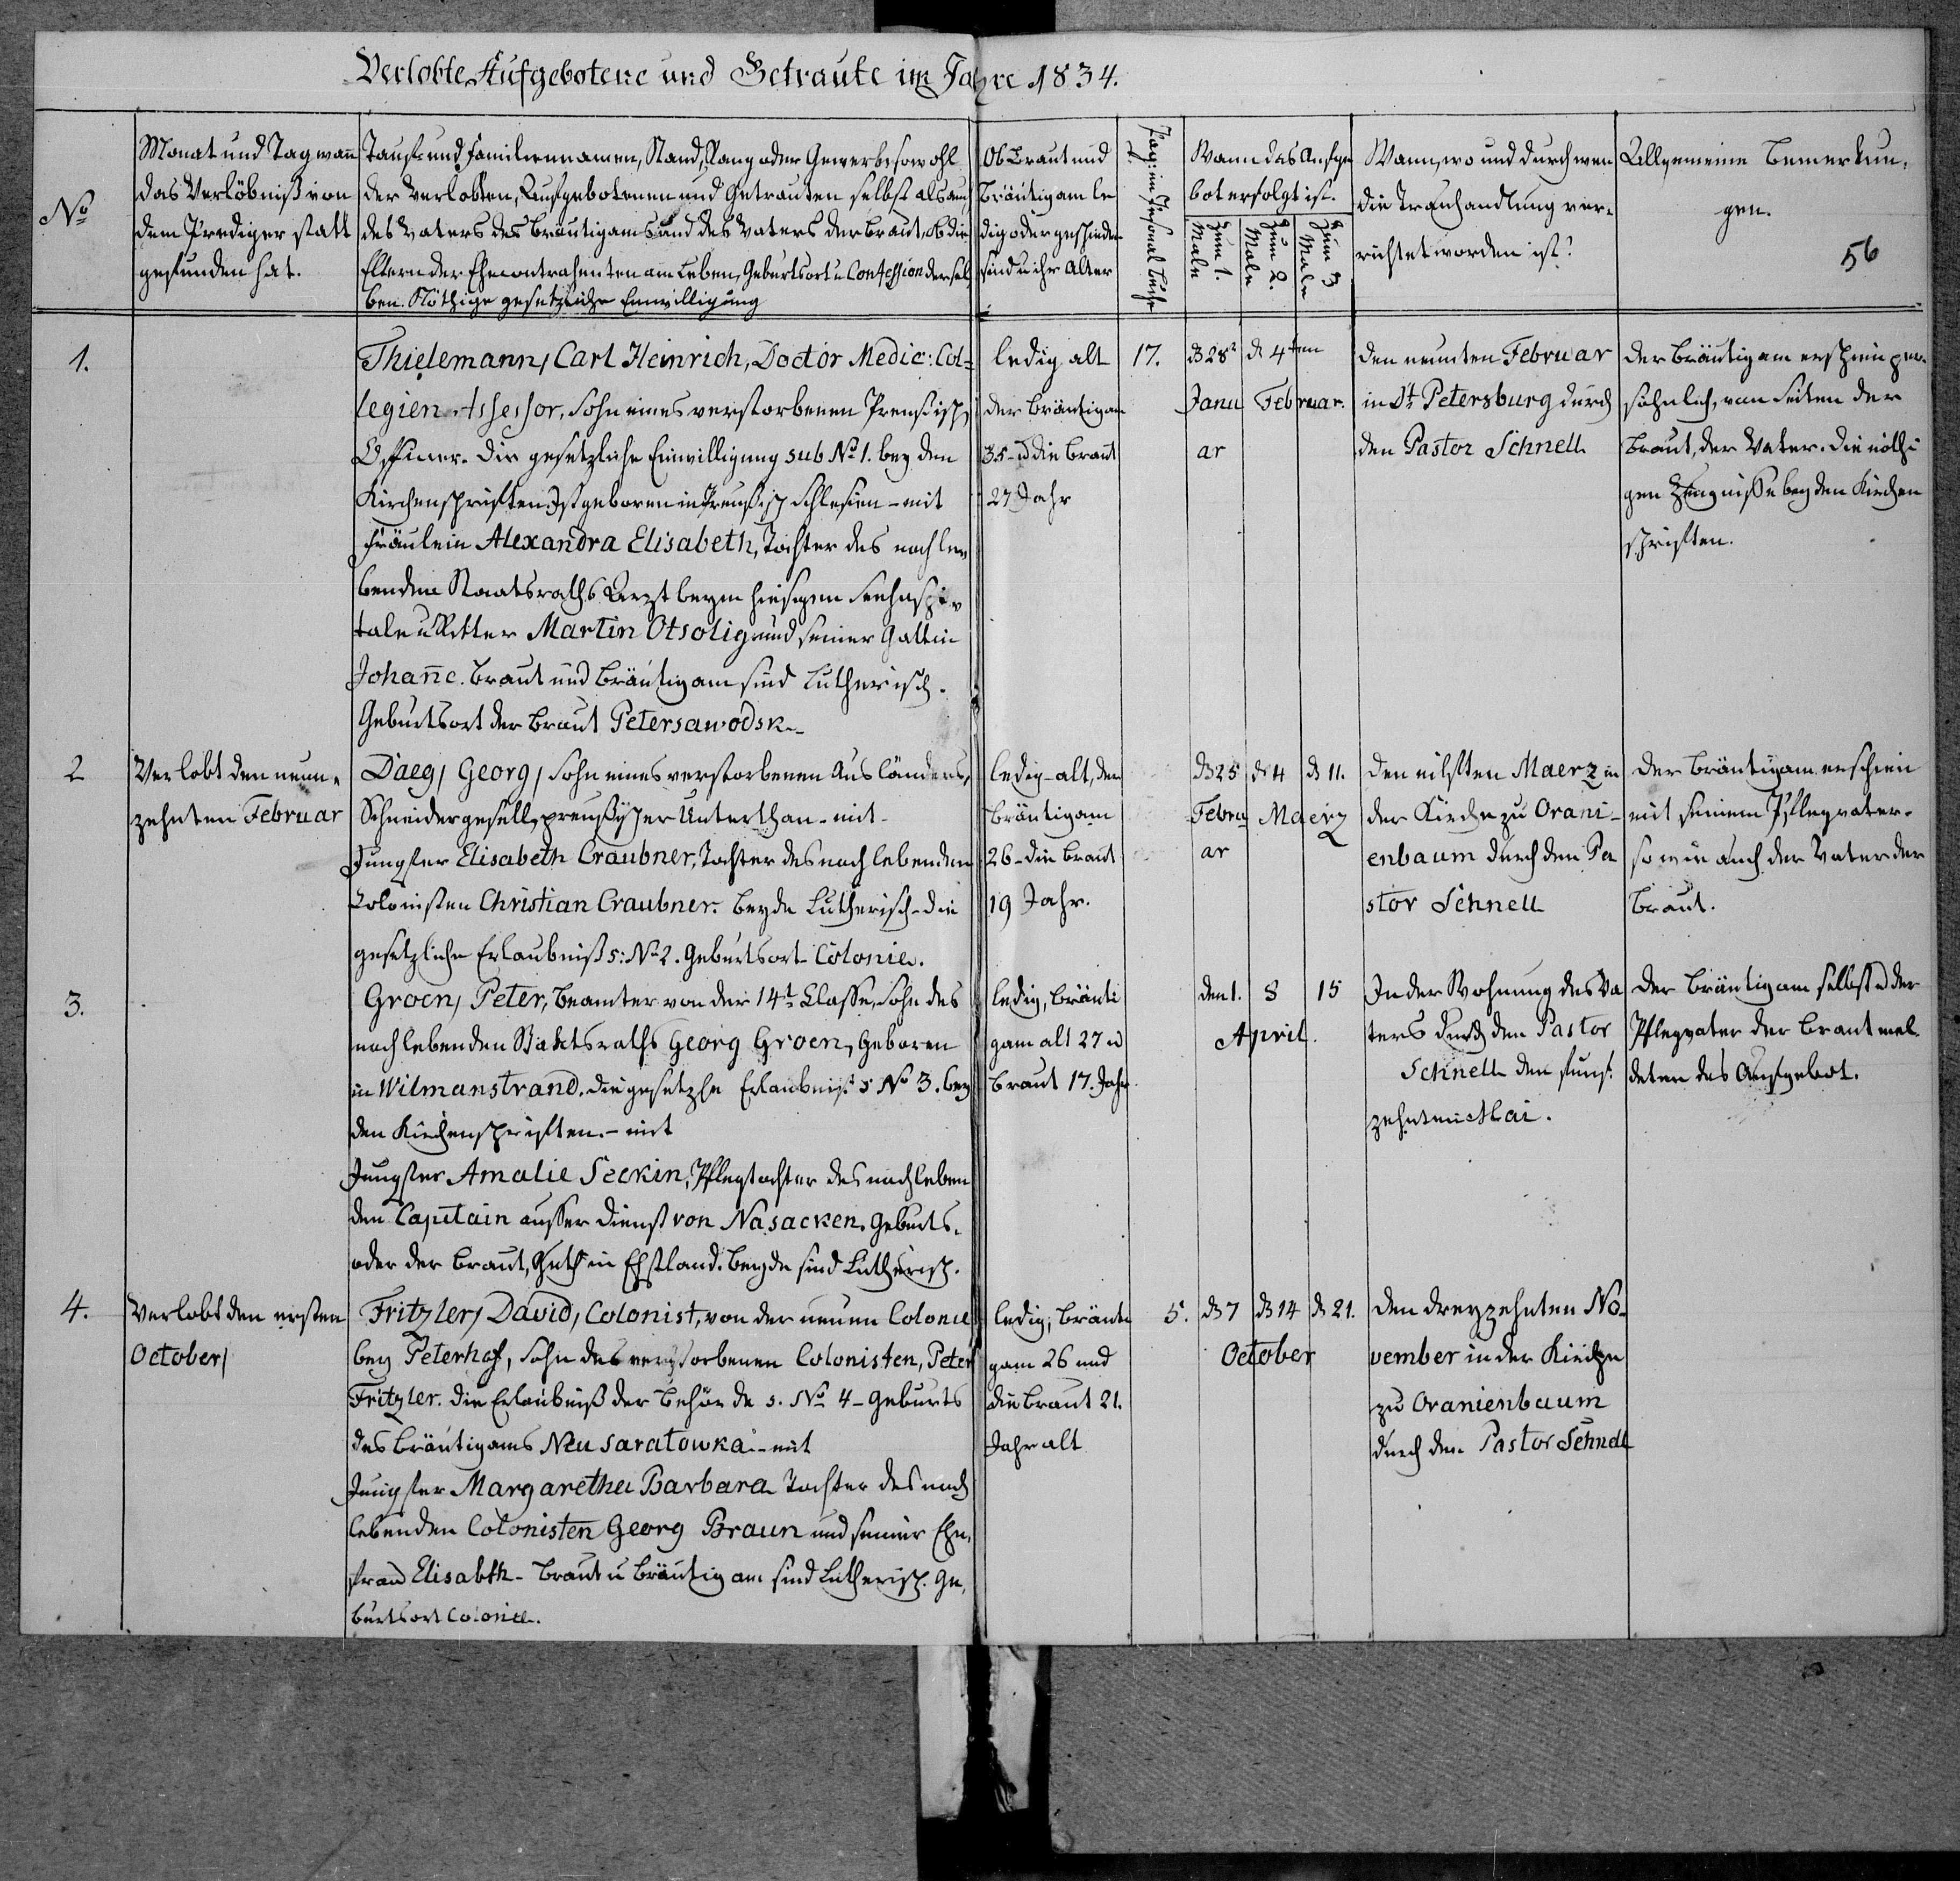 Verlobte, Aufgebotene und Getraute im Jahre 1834.
No
Monat und Tag wann
das Verlöbniß von
dem Prediger statt
gefunden hat.
Tauf- und Familiennamen, Stand, Rang oder Gewerbe sowohl
der Verlobten, Aufgebotenen und Getrauten selbst als auch
des Vaters des Bräutigams und des Vaters der Braut, ob die
Eltern der Ehecontrahenten am Leben, Geburtsort u Confession dersel
ben. Nöthige gesetzliche Einwilligung
Ob Braut und
Bräutigam le
dig oder geschieden
sind u ihr Alter
Pag: im Personal Buche
Wann das Aufge
bot erfolgt ist.
Zum 1. Male
Zum 2. Male
Zum 3 Male
Wann, wo und durch wen
die Trauhandlung ver-
richtet worden ist?
Allgemeine Bemerkun-
gen.
56
1.
Thielemann, Carl Heinrich, Doctor Medic: Col-
legien Assessor, Sohn eines verstorbenen Preusisch
Officier. Die gesetzliche Einwilligung sub No 1. bey den
Kirchenschriften. Ist geboren in Preusisch Schlesien - mit
Fräulein Alexandra Elisabeth, Tochter des noch le-
benden Staatsraths Arzt beym hiesigen Seehospi-
tale u Ritter Martin Otsolig und seiner Gattin
Johanne. Braut und Bräutigam sind Lutherisch.
Geburtsort der Braut Petersawodsk
ledig alt
der Bräutigam
35 - u die Braut
27 Jahr
17.
d 28
Janu
ar
d 4ten
Februar.
den neunten Februar
in St Petersburg durch
den Pastor Schnell
der Bräutigam erschien per-
söhnlich, von Seiten der
Braut, der Vater. Die nöthi
gen Zeugnisse bey den Kirchen
schriften.
2
Verlobt den neun-
zehnten Februar
Daeg, Georg, Sohn eines verstorbenen Ausländers,
Schneidergesell, preußischer Unterthan - mit
Jungfer Elisabeth Craubner, Tochter des noch lebenden
Colonisten Christian Craubner. Beyde Lutherisch - die
gesetzliche Erlaubniß s: No 2. Geburtsort Colonie.
ledig - alt, der
Bräutigam
26 - die Braut
19 Jahr.
d 25
Febru
ar
d 4
d 11.
Maerz
den eilften Maerz in
der Kirche zu Orani-
enbaum durch den Pa
stor Schnell
der Bräutigam erschien
mit seinem Pflegvater.
so wie auch der Vater der
Braut.
3.
Groen, Peter, Beamter von der 14t Classe, Sohn des
noch lebenden Staatsraths Georg Groen, Geboren
in Wilmanstrand. die gesetzle Erlaubniß s No 3. bey
den Kirchenschriften. - mit
Jungfer Amalie Seckin, Pflegtochter des noch leben
den Capitain ausser Dienst von Nasacken. Geburts-
oder der Braut, Guth in Ehstland. Beyde sind Lutherisch.
ledig, Bräuti
gam alt 27 u
Braut 17. Jahr
den 1.
8
15
April.
In der Wohnung des Va
ters durch den Pastor
Schnell den funf-
zehnten Mai.
der Bräutigam selbst u der
Pflegvater der Braut mel
deten das Aufgebot.
4.
Verlobt den ersten
October
Fritzler, David, Colonist, von der neuen Colonie
bey Peterhof, Sohn des verstorbenen Colonisten, Peter
Fritzler. die Erlaubniß der Behörde s. No 4 - Geburts
des Bräutigams Neu Saratowka - mit
Jungfer Margaretha Barbara Tochter des noch
lebenden Colonisten Georg Braun und seiner Ehe-
frau Elisabth - Braut u Bräutigam sind Lutherisch. Ge-
burtsort Colonie.
ledig, Bräuti
gam 26 und
die Braut 21.
Jahr alt
5.
d 7
d 14
d 21.
October
den dreyzehnten No-
vember in der Kirche
zu Oranienbaum
durch den Pastor Schnell